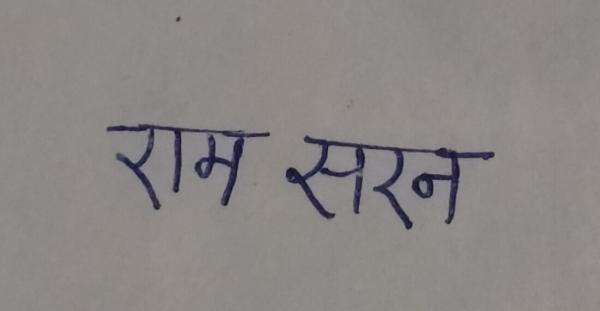 राम सरन